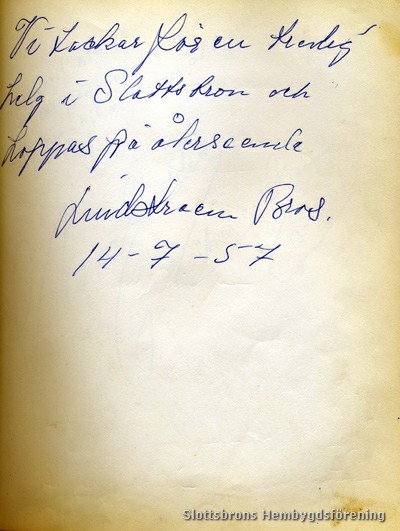 Vi tackar för en trevlig
helg i Slottsbron och
hoppas på återseende
Lindstroem Bros.
14-7-57
Slottsbrons Hembygdsförening